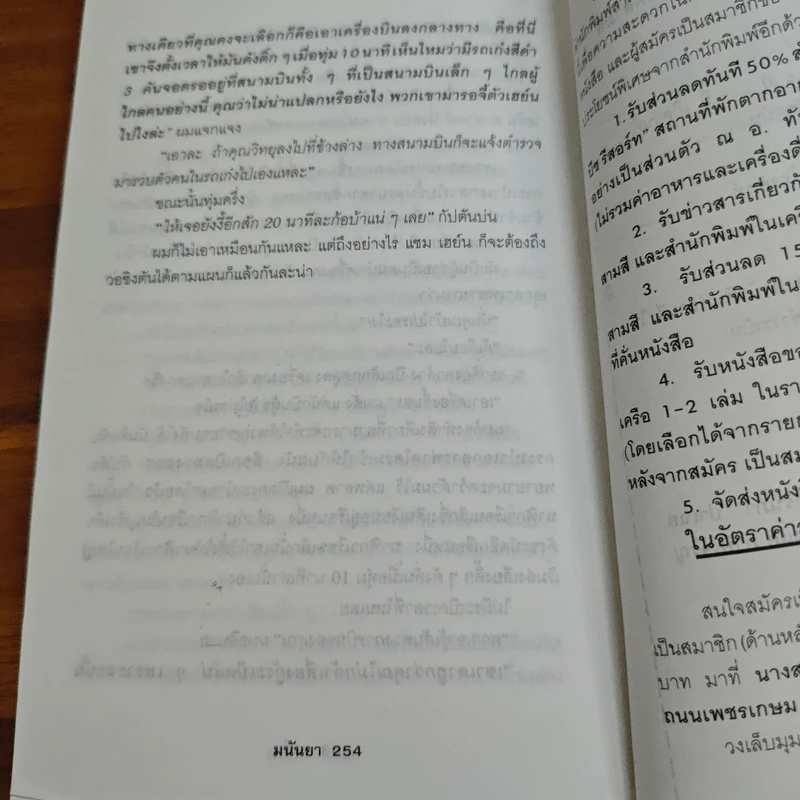 ทางเดียวที่คุณคงจะเลือกก็คือเอาเครื่องบินลงกลางทาง คือที่นี่
เขาจึงตั้งเวลาให้มันดังติ๊ก ๆ เมื่อทุ่ม 10 นาที เห็นไหมว่ามีรถเก๋งสีดำ
3 คันจอดรออยู่ที่สนามบินทั้ง ๆ ที่เป็นสนามบินเล็ก ๆ ไกลผู้
ไกลคนอย่างนี้ คุณว่าไม่น่าแปลกหรือยังไง พวกเขามารอจี้ตัวเฮย์น
ไปไงล่ะ" ผมแจกแจง
"เอาละ ถ้าคุณวิทยุลงไปที่ข้างล่าง ทางสนามบินก็จะแจ้งตำรวจ
มารวบตัวคนในรถเก๋งไปเองแหละ"
ขณะนั้นทุ่มครึ่ง
"ให้เจอยังงี้อีกสัก 20 นาทีละก้อบ้าแน่ ๆ เลย" กัปตันบ่น
ผมก็ไม่เอาเหมือนกันแหละ แต่ถึงอย่างไร แซม เฮย์น ก็จะต้องถึง
วอชิงตันได้ตามแผนก็แล้วกันละน่า
มนันยา 254
หนังสือ และผู้สมัครเป็นสมาชิก
ประโยชน์พิเศษจากสำนักพิมพ์อีกด้วย
1. รับส่วนลดทันที 50%
บีช รีสอร์ท" สถานที่พักตากอา
อย่างเป็นส่วนตัว ณ อ. ทั
(ไม่รวมค่าอาหารและเครื่องดื่
2. รับข่าวสารเกี่ยวกั
สามสี และสำนักพิมพ์ในเครื
3. รับส่วนลด 15
สามสี และสำนักพิมพ์ใน
ที่คั่นหนังสือ
4. รับหนังสือขอ
เครือ 1-2 เล่ม ในรา
(โดยเลือกได้จากรายก
หลังจากสมัคร เป็นสม
5. จัดส่งหนังสื
ในอัตราค่า
สนใจสมัครเป็
เป็นสมาชิก (ด้านหลั
บาท มาที่ นางส
ถนนเพชรเกษม
วงเล็บมุม